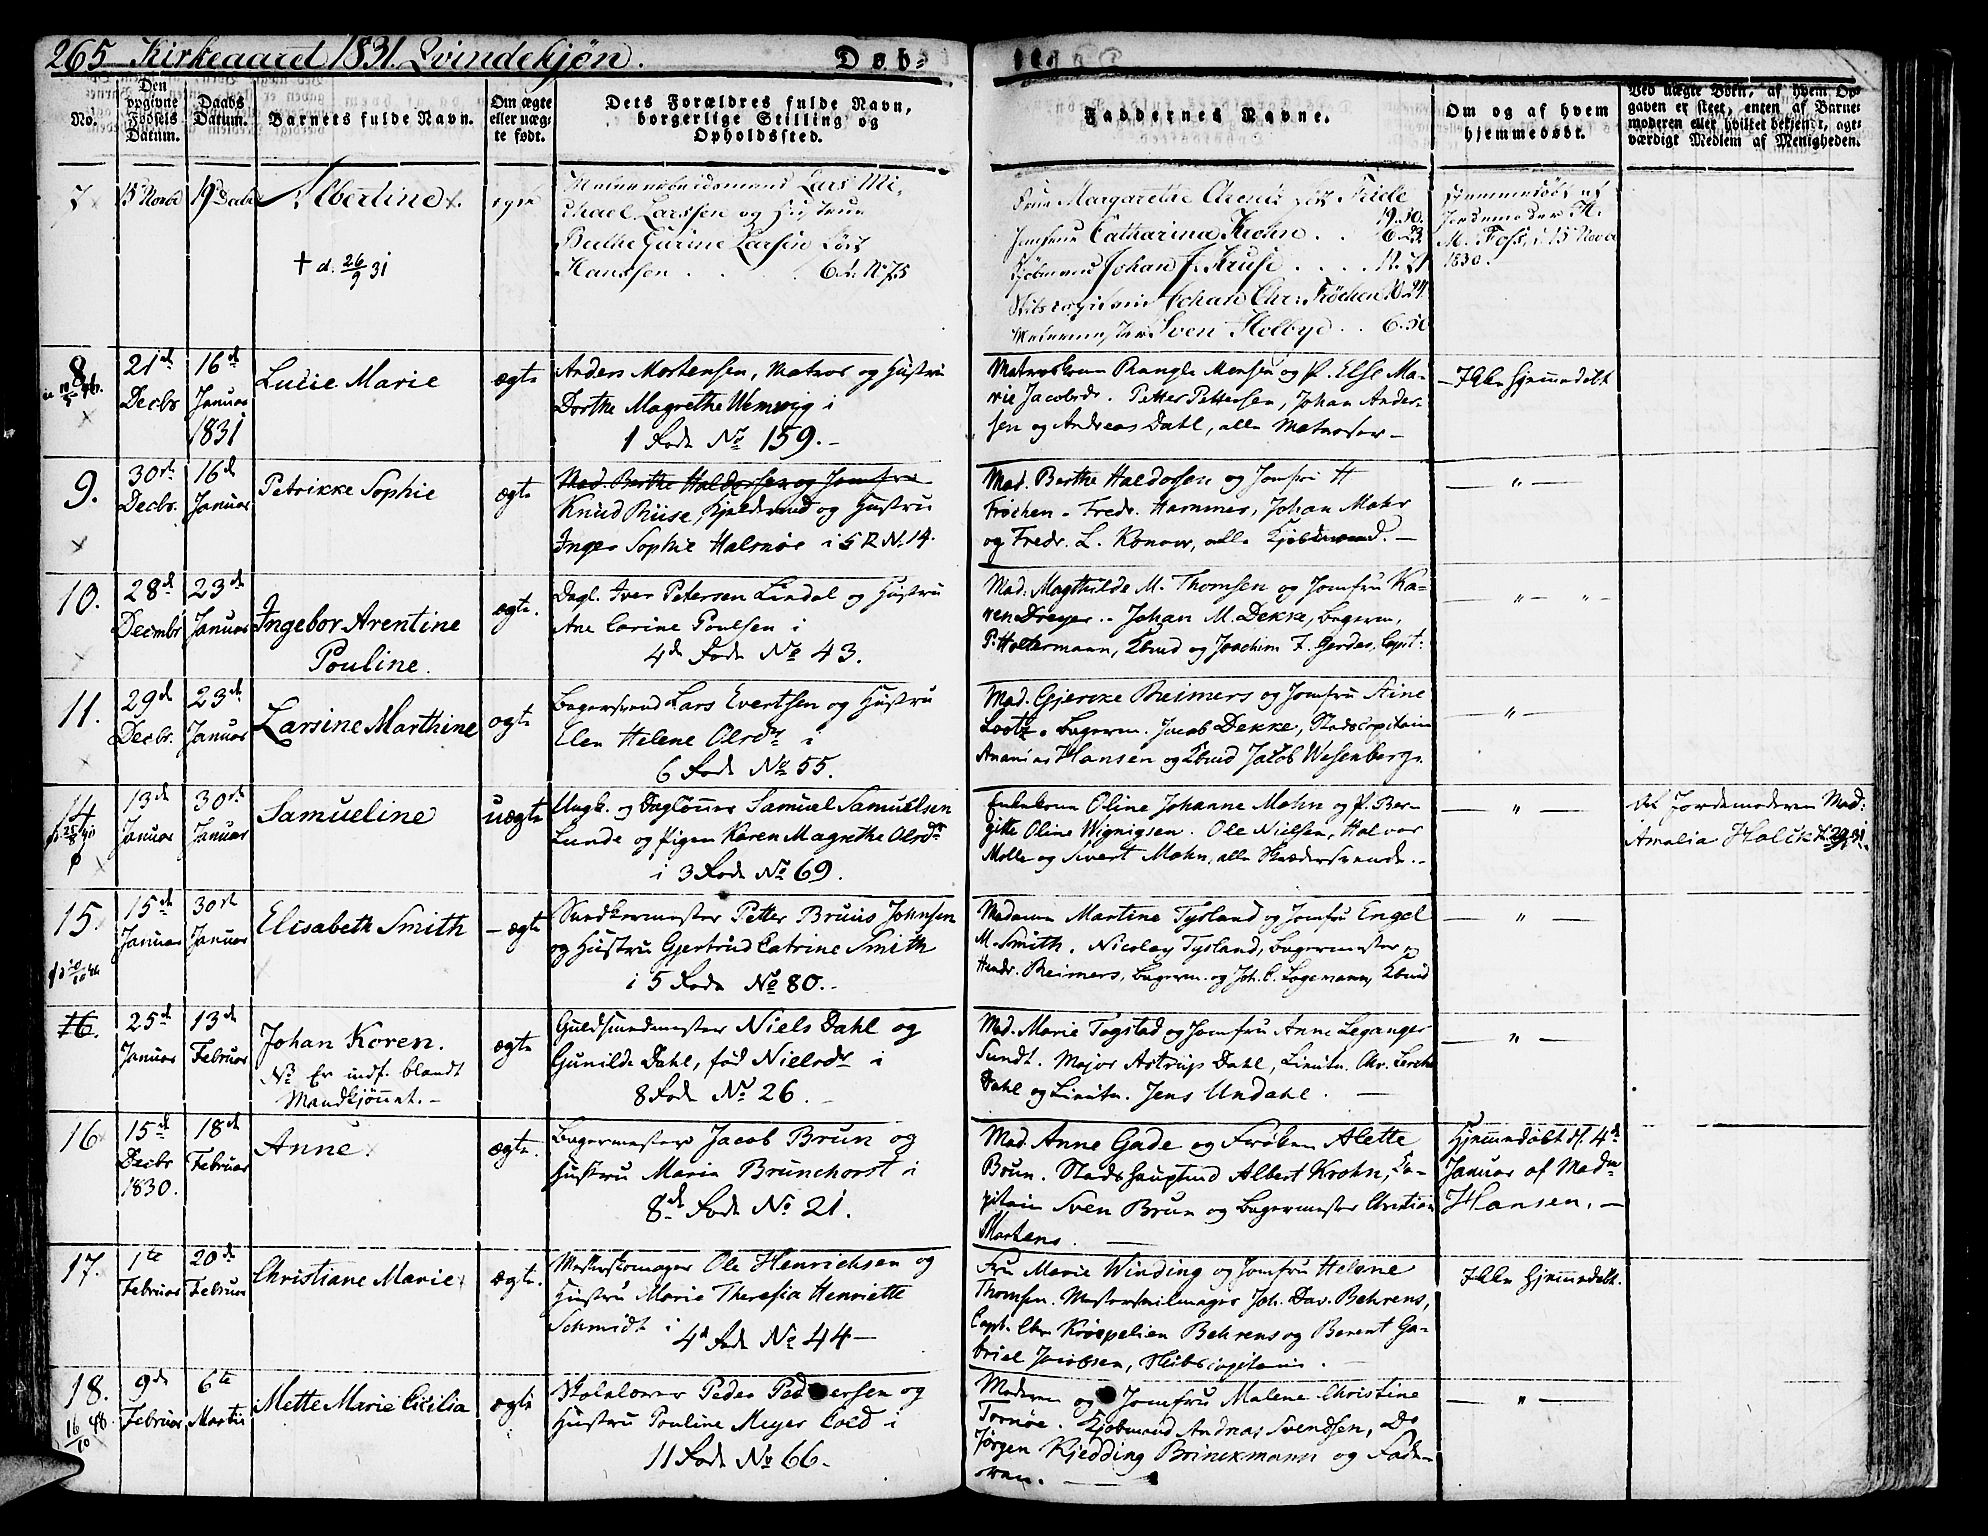 265 Kirkeaaret 1831. Qvindekjøn.
Døb-
No.
Den opgivne Fødsels Datum.
Daabs Datum.
Barnets fulde Navn.
Om ægte eller uægte født.
Dets Forældres fulde Navn, borgerlige Stilling og Opholdssted.
Faddernes Navne.
Om og af hvem hjemmedøbt.
Ved uægte Børn, af hvem Opgaven er skeet, enten af Barnemoderen eller hvilket bekjendt, agtværdigt Medlem af Menigheden.
7
15 Novbr
19 Decbr
Albertine
† d. 26/9 31
ægte
Lars Mi-
chael Larssen og Hustrue
Berthe Gurine Larsen født
Hanssen 6. N. 75
Frue Margarethe
Jomfrue Catharina Krohn
Kjøbmand Johan F. Kruse
Johan Chr: Frochen
Sven Holbye
Hjemmedøbt af
Jordemoder
M. Foss, d. 15 Novbr
1830.
8
21de
Decbr
16de
Januar
1831
Lucie Marie
ægte
Anders Mortensen, Matros og Hustru
Dorthe Magrethe Wernvig i
1 Rode No 159.
Matroskone Rangle Monsen og P. Else Ma-
rie Jacobsdr. Petter Pettersen, Johan Ander-
sen og Andreas Dahl, alle Matroser
Ikke hjemmedøbt
9.
30te
Decbr.
16de
Januar
Petrikke Sophie
ægte
Mad. Berthe Haldorsen og Jomfru
Knud Riise, Kjøldsvend og Hustru
Inger Sophie Halsnøe i 5 R N. 14.
Mad. Berthe Haldorsen og Jomfru H
Frochen. Fredr. Hammer, Johan Mohr
og Fredr. L. Konow, alle Kjøbmænd.
"
10.
28de
Decmbr
23de
Januar
Ingebor Arentine
Pouline.
ægte.
Dagl. Iver Petersen Lindal og Hustru
Ane Carine Poulsen i
4de Rode No 43.
Mad. Magthilde M. Thomsen og Jomfru Ka-
ren Dreyer. Johan M. Dekke, Bagerm,
P. Holtermann, Kbmd og Joachim F. Gerdes, Capt:
" "
11.
29de
Decbr.
23de
Januar
Larsine Marthine
ægte
Bagersvend Lars Evertsen og Hustru
Elen Helene Olsdr i
6 Rode No 55.
Mad. Gjercke Reimers og Jomfru Stine
Lootz. Bagerm. Jacob Dekke, Stadscapitain
Ananias Hansen og Kbmd Jacob Wesenberg.
"
14
13de
Januar
30te
Januar
Samueline
uægte
Ungk. og Dagløner Samuel Samuelsen
Lunde og Pigen Karen Magrethe Olsdr
i 3 Rode No 69.
Enkekone Oline Johanne Mohn og P. Ber-
gitte Oline Wignigsen. Ole Nielsen, Halvor
Molle og Sivert Mohn, alle Skrædersvende.
"
Af Jordemoderen Mad:
Amalia Holck
15.
15de
Januar
30te
Januar
Elisabeth Smith
ægte
Snedkermester Petter Bruus Johnsen
og Hustru Gjertrud Catrine Smith
i 5 Rode No 80.
Madame Martine Tysland og Jomfru Engel
M. Smith. Nicolay Tysland, Bagermester og
Hendr. Reimers, Bagerm. og Joh. C. Logemann, Kbmd
"
16.
25de
Januar
13de
Februar
Johan Koren.
NB Er indf. blandt
Mandkjønnet.
ægte
Guldsmedmester Niels Dahl og
Gunilde Dahl, fød Nielsdr i
8 Rode No 26
Mad. Marie Togstad og Jomfru Anne Leganger
Sundt. Major Astrup Dahl, Lieutn. Chr. Lerche
Dahl og Lieutn. Jens Undahl.
"
16
15de
Decbr
1830.
18de
Februar
Anne
ægte.
Bagermester Jacob Brun og
Hustru Maria Brunchorst i
8de Rode No 21.
Mad. Anne Gade og Frøken Alette
Brun. Stadshauptmd Albert Krohn, Ca-
pitain Sven Brun og Bagermester Christian
Martens.
Hjemmedøbt d. 4de
Januar af Madm
Hansen.
17.
1te
Februar
20de
Februar
Christiane Marie
ægte.
Mesterskomager Ole Henrichsen og
Hustru Marie Theresia Henriette
Schmidt i 4de Rode No 44
Fru Marie Winding og Jomfru Helene
Thomsen. Mesterseilmager Joh. Dav. Behrens,
Capt. Chr Krøepelien Behrens og Berent Ga-
briel Jacobsen, Skibscapitain.
Ikke hjemmedøbt.
18.
16/10 48.
9de
Februar
6te
Martii
Mette Marie Cicilia
ægte
Skolelærer Peder Pedersen og
Hustru Pouline Meyer Coed i
11 Rode No 66.
Moderen og Jomfru Malene Christine
Tornøe. Kjøbmand Andreas Svendsen, Do
Jørgen Kjedding Brinckmann og Fade-
ren.
"